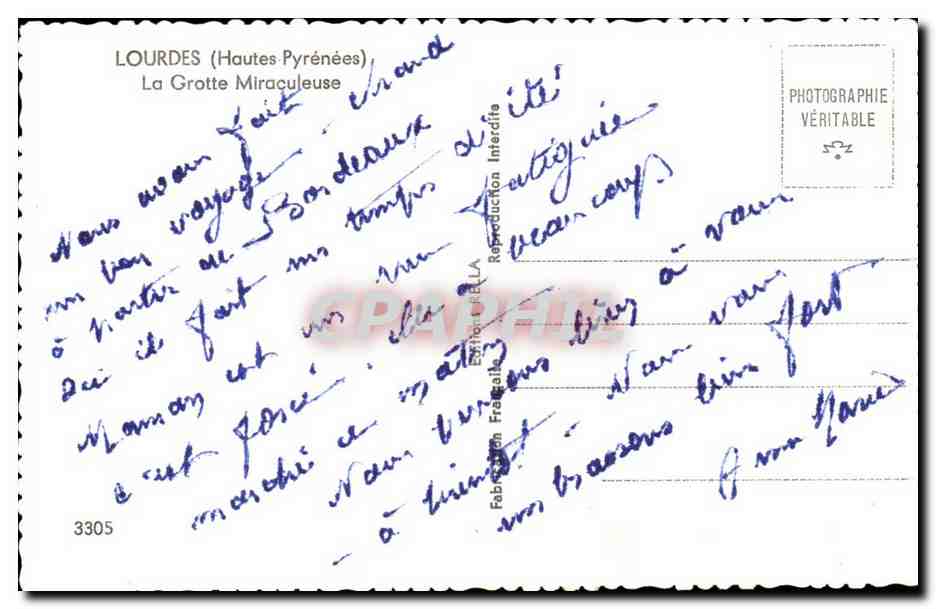 LOURDES (Hautes-Pyrénées)
La Grotte Miraculeuse
PHOTOGRAPHIE
VÉRITABLE
Nous avons fait
un bon voyage, chaud
à partir de Bordeaux
Ici il fait un temps d'été
Maman est un peu fatiguée
c'est forcé, elle a beaucoup
marché ce matin
Nous pensons bien à vous
à bientôt. Nous vous
embrassons bien fort
Anne Marie
Editions RELLA
Fabrication Française Reproduction Interdite
CPAPHIL
3305